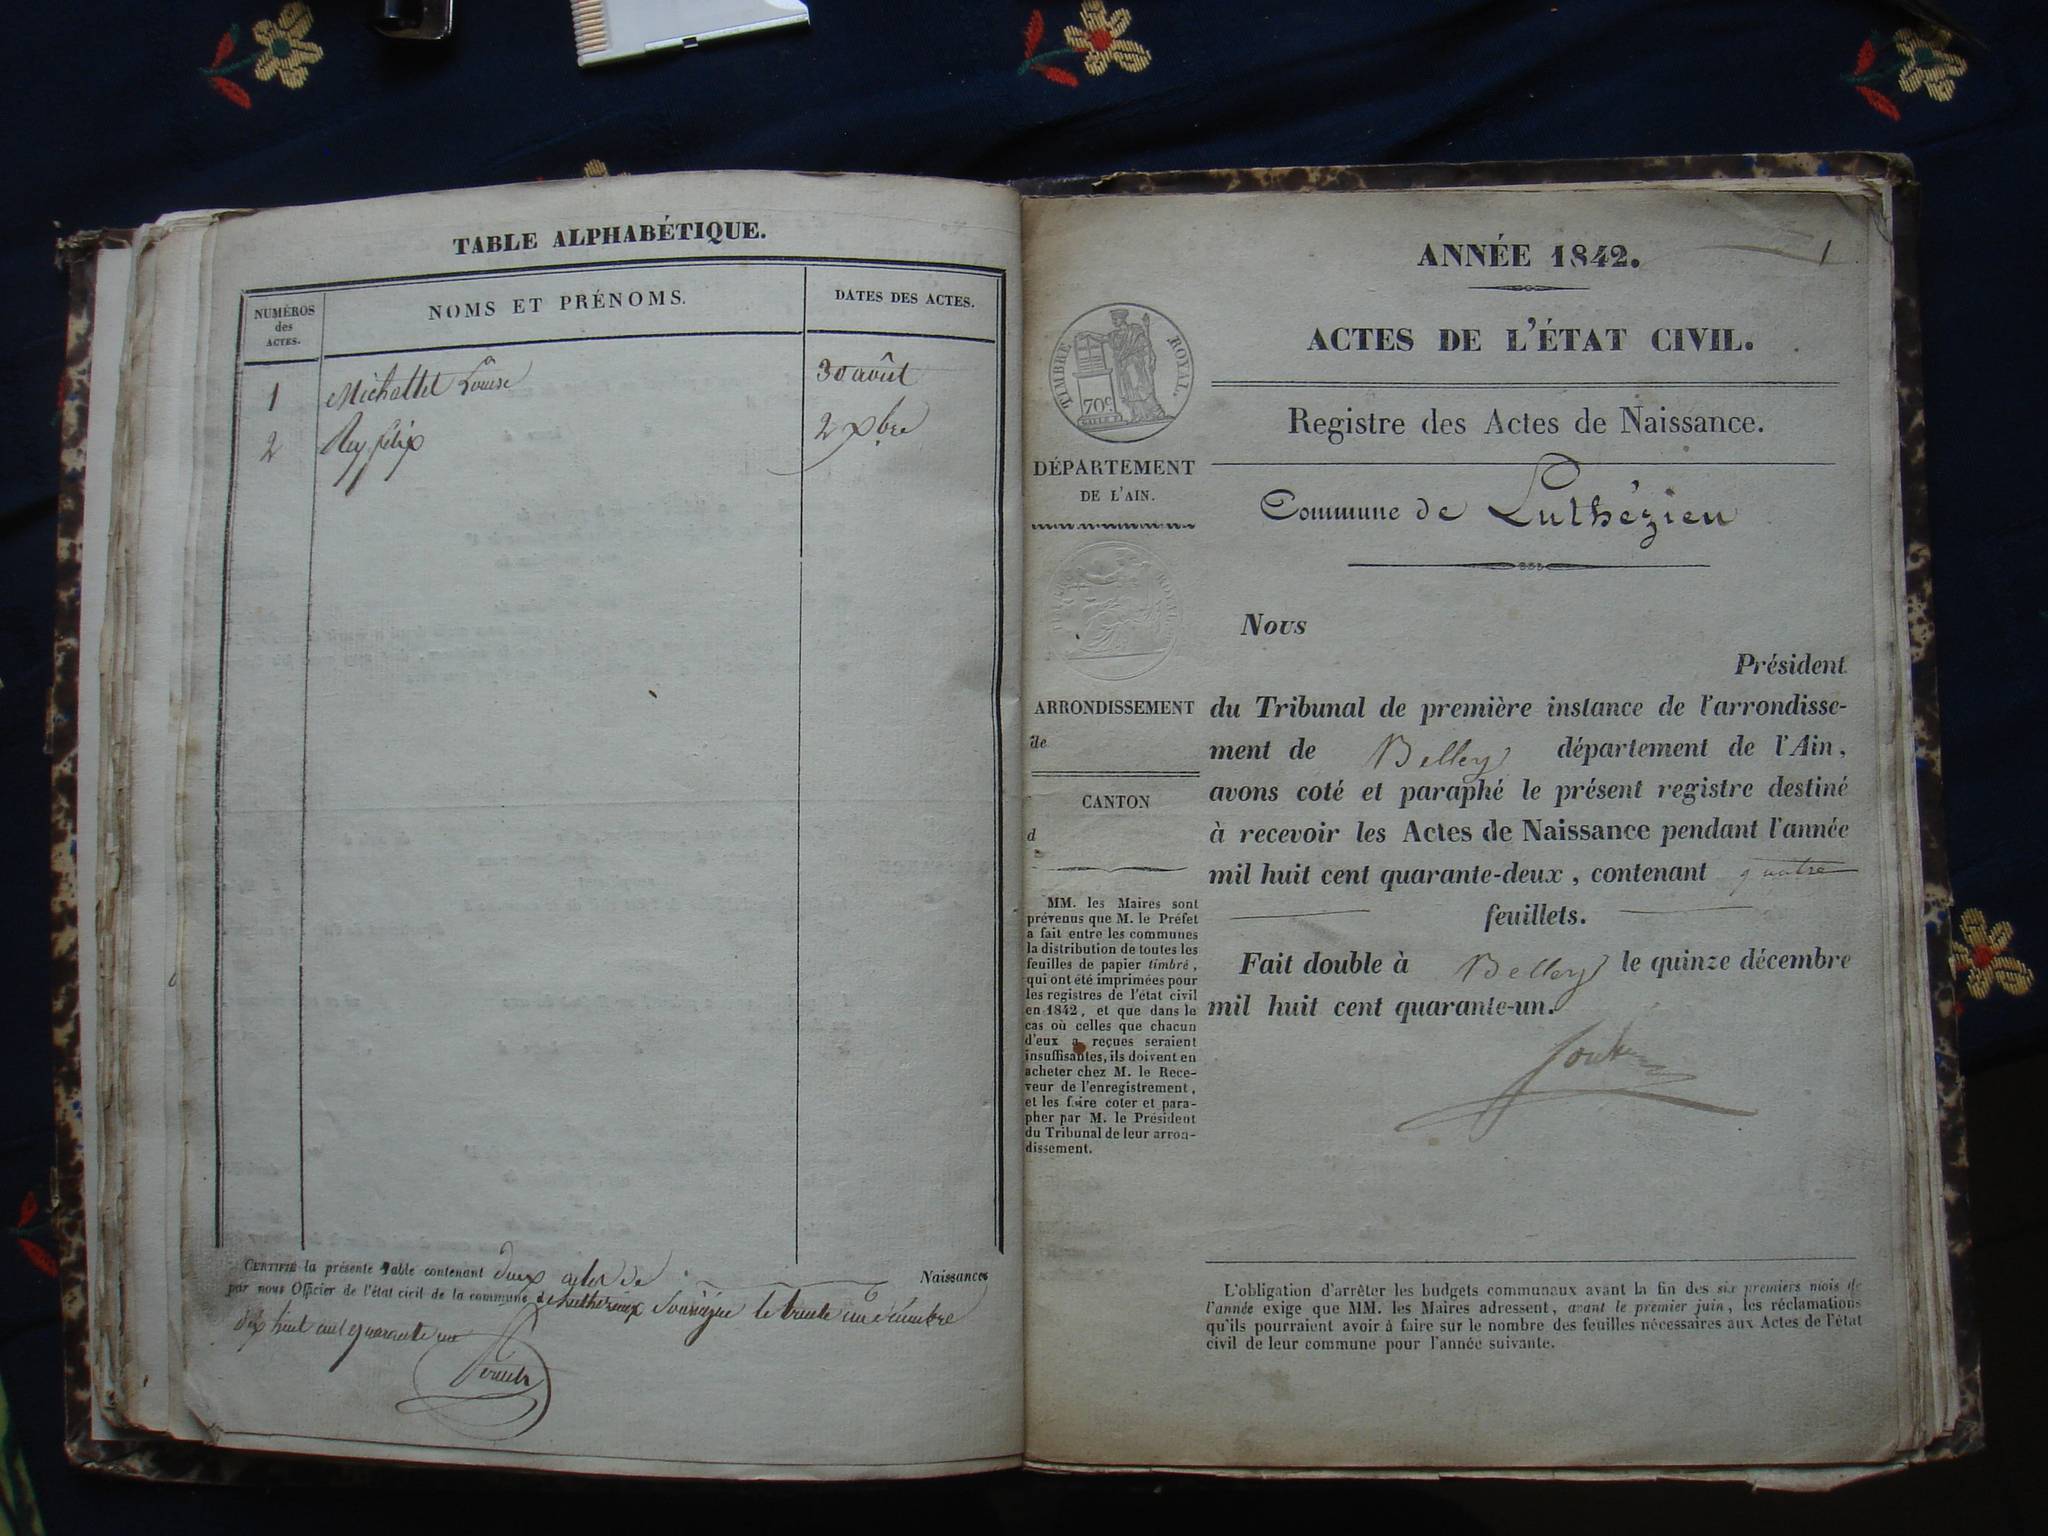 TABLE ALPHABÉTIQUE.
NUMÉROS
des
ACTES.
NOMS ET PRÉNOMS.
DATES DES ACTES.
1 Michallet Louise 30 août
2 Rey félix 2 xbre
CERTIFIÉ la présente Table contenant deux actes de Naissances
par nous Officier de l'état civil de la commune de le trente un décembre
dix huit cent quarante un
ANNÉE 1842.
1
ACTES DE L'ÉTAT CIVIL.
Registre des Actes de Naissance.
Commune de Luthézieu
TIMBRE ROYAL.
70c
DÉPARTEMENT
DE L'AIN.
ROYAL
ARRONDISSEMENT
de
CANTON
d
MM. les Maires sont
prévenus que M. le Préfet
a fait entre les communes
la distribution de toutes les
feuilles de papier timbré,
qui ont été imprimées pour
les registres de l'état civil
en 1842, et que dans le
cas où celles que chacun
d'eux a reçues seraient
insuffisantes, ils doivent en
acheter chez M. le Rece-
veur de l'enregistrement,
et les faire coter et para-
pher par M. le Président
du Tribunal de leur arron-
dissement.
Nous
Président
du Tribunal de première instance de l'arrondisse-
ment de Belley département de l'Ain,
avons coté et paraphé le présent registre destiné
à recevoir les Actes de Naissance pendant l'année
mil huit cent quarante-deux, contenant quatre
feuillets.
Fait double à Belley le quinze décembre
mil huit cent quarante-un.
L'obligation d'arrêter les budgets communaux avant la fin des six premiers mois de
l'année exige que MM. les Maires adressent, avant le premier juin, les réclamations
qu'ils pourraient avoir à faire sur le nombre des feuilles nécessaires aux Actes de l'état
civil de leur commune pour l'année suivante.